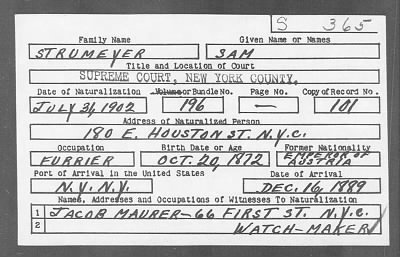 S 365
Family Name Given Name or Names
STRUMEYER SAM
Title and Location of Court
SUPREME COURT, NEW YORK COUNTY.
Date of Naturalization Volume or Bundle No. Page No. Copy of Record No.
JULY 31, 1902 196 — 101
Address of Naturalized Person
180 E. HOUSTON ST. N.Y.C.
Occupation Birth Date or Age Former Nationality
FURRIER OCT. 20, 1872 EMPEROR OF AUSTRIA
Port of Arrival in the United States Date of Arrival
N.Y. N.Y. DEC. 16, 1889
Names, Addresses and Occupations of Witnesses To Naturalization
1 JACOB MAURER - 66 FIRST ST. N.Y.C.
2 WATCH-MAKER